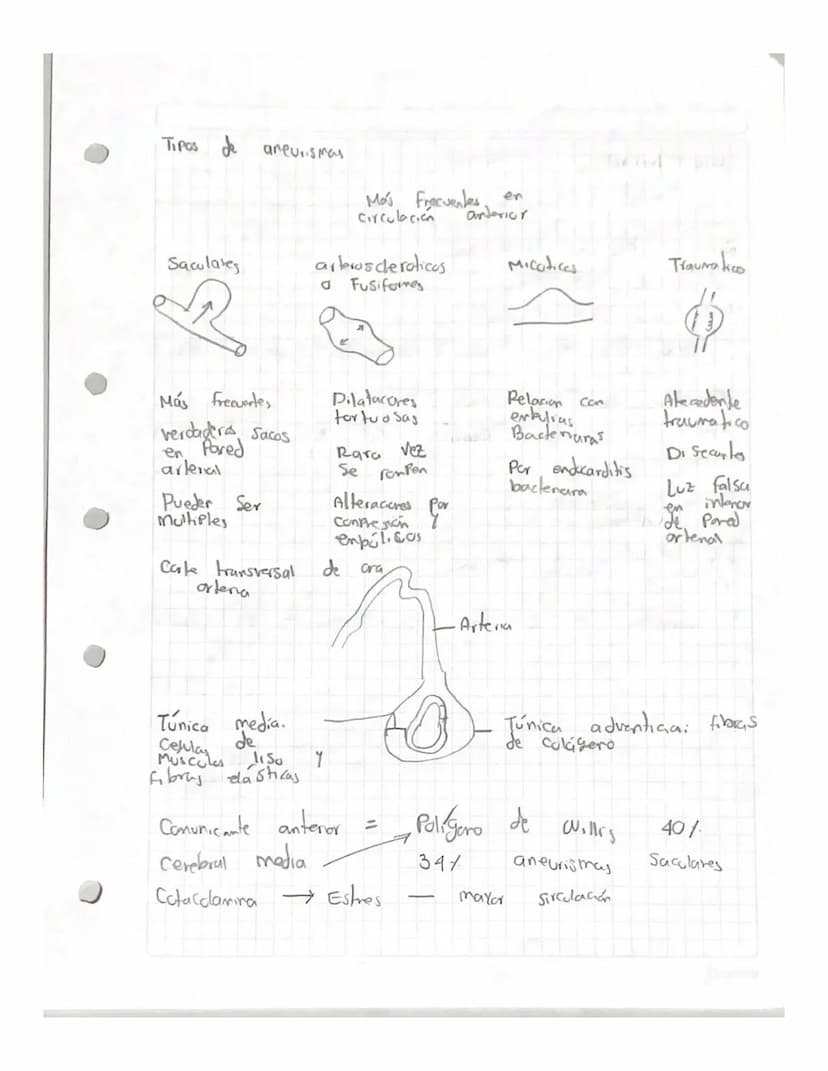 Tipos de aneurismas
Más Frecuentes en
circulación anterior
Saculares
arterioscleroticos
o Fusiformes
Micoticos
Traumatico
Más frecuentes
verdaderos sacos
en Pared
arterial
Pueden Ser
multiples
Dilataciones
tortuosas
Rara vez
se rompen
Alteraciones por
compresión y
embólicos
Relacion con
Bacterianas
Por endocarditis
bacteriana
Atecedente
traumatico
Disecantes
Luz falsa
en interior
de Pared
arterial
Corte transversal de
arteria
Arteria
Túnica media.
Celulas de
Musculos liso y
fibras elásticas
Túnica adventicia: fibras
de colágeno
Comunicante anterior = Polígono de Willis 40%
Cerebral media 34% aneurismas Saculares
Catacolamina → Estres — mayor sirculación